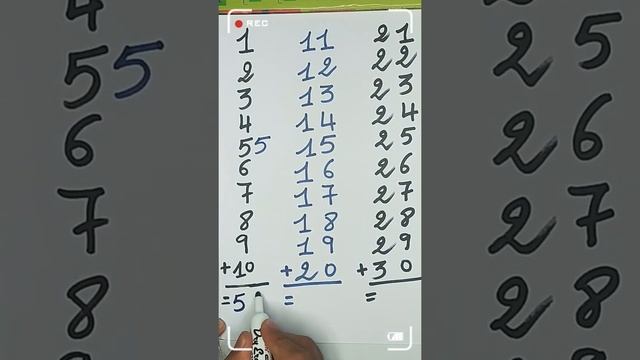 REC
1 11 21
2 12 22
3 13 23
4 14 24
55 15 25
6 16 26
7 17 27
8 18 28
9 19 29
+10 +20 +30
=5 = =